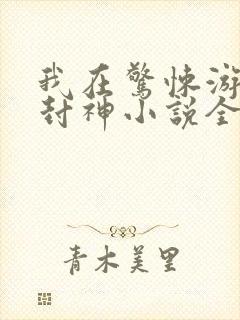 我在驚悚游
封神小說全
青木美里